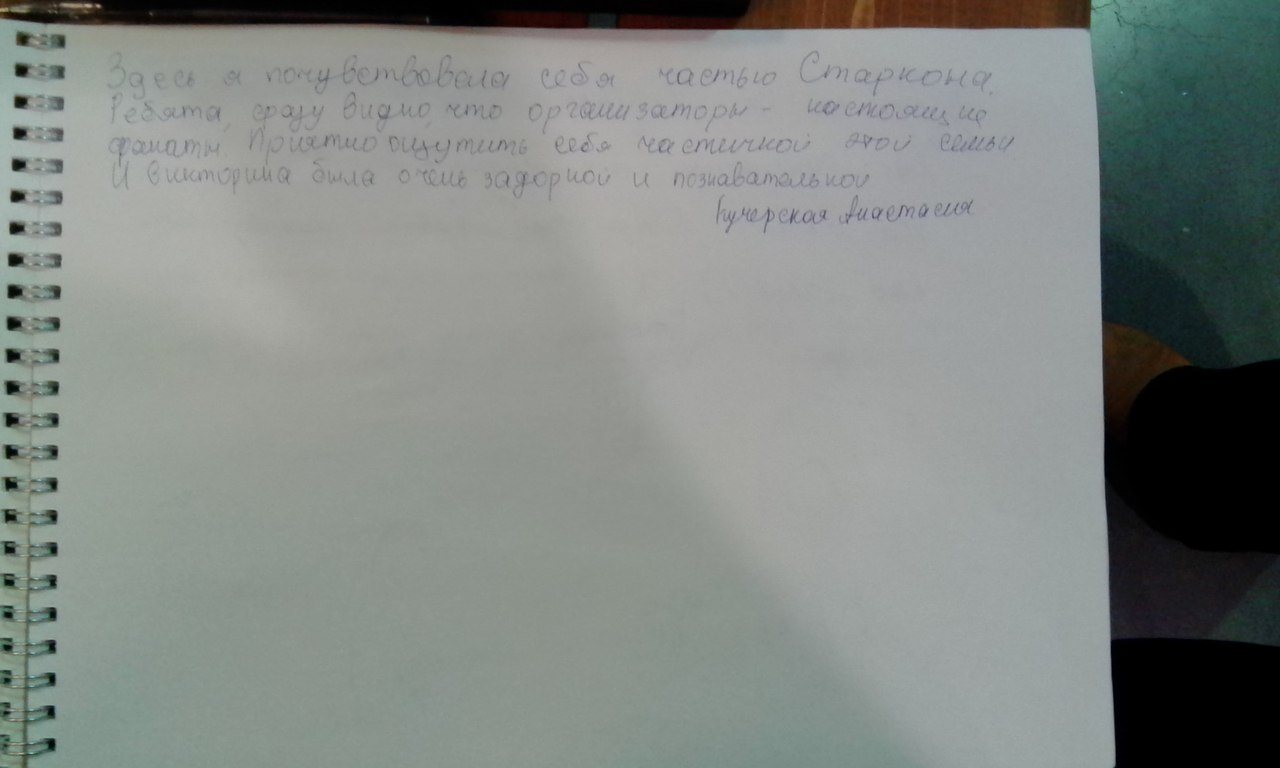 Здесь я почувствовала себя частью Старкона.
Ребята, сразу видно, что организаторы - настоящие
фанаты. Приятно ощутить себя частичкой этой семьи
И викторина была очень задорной и познавательной
Кучерская Анастасия